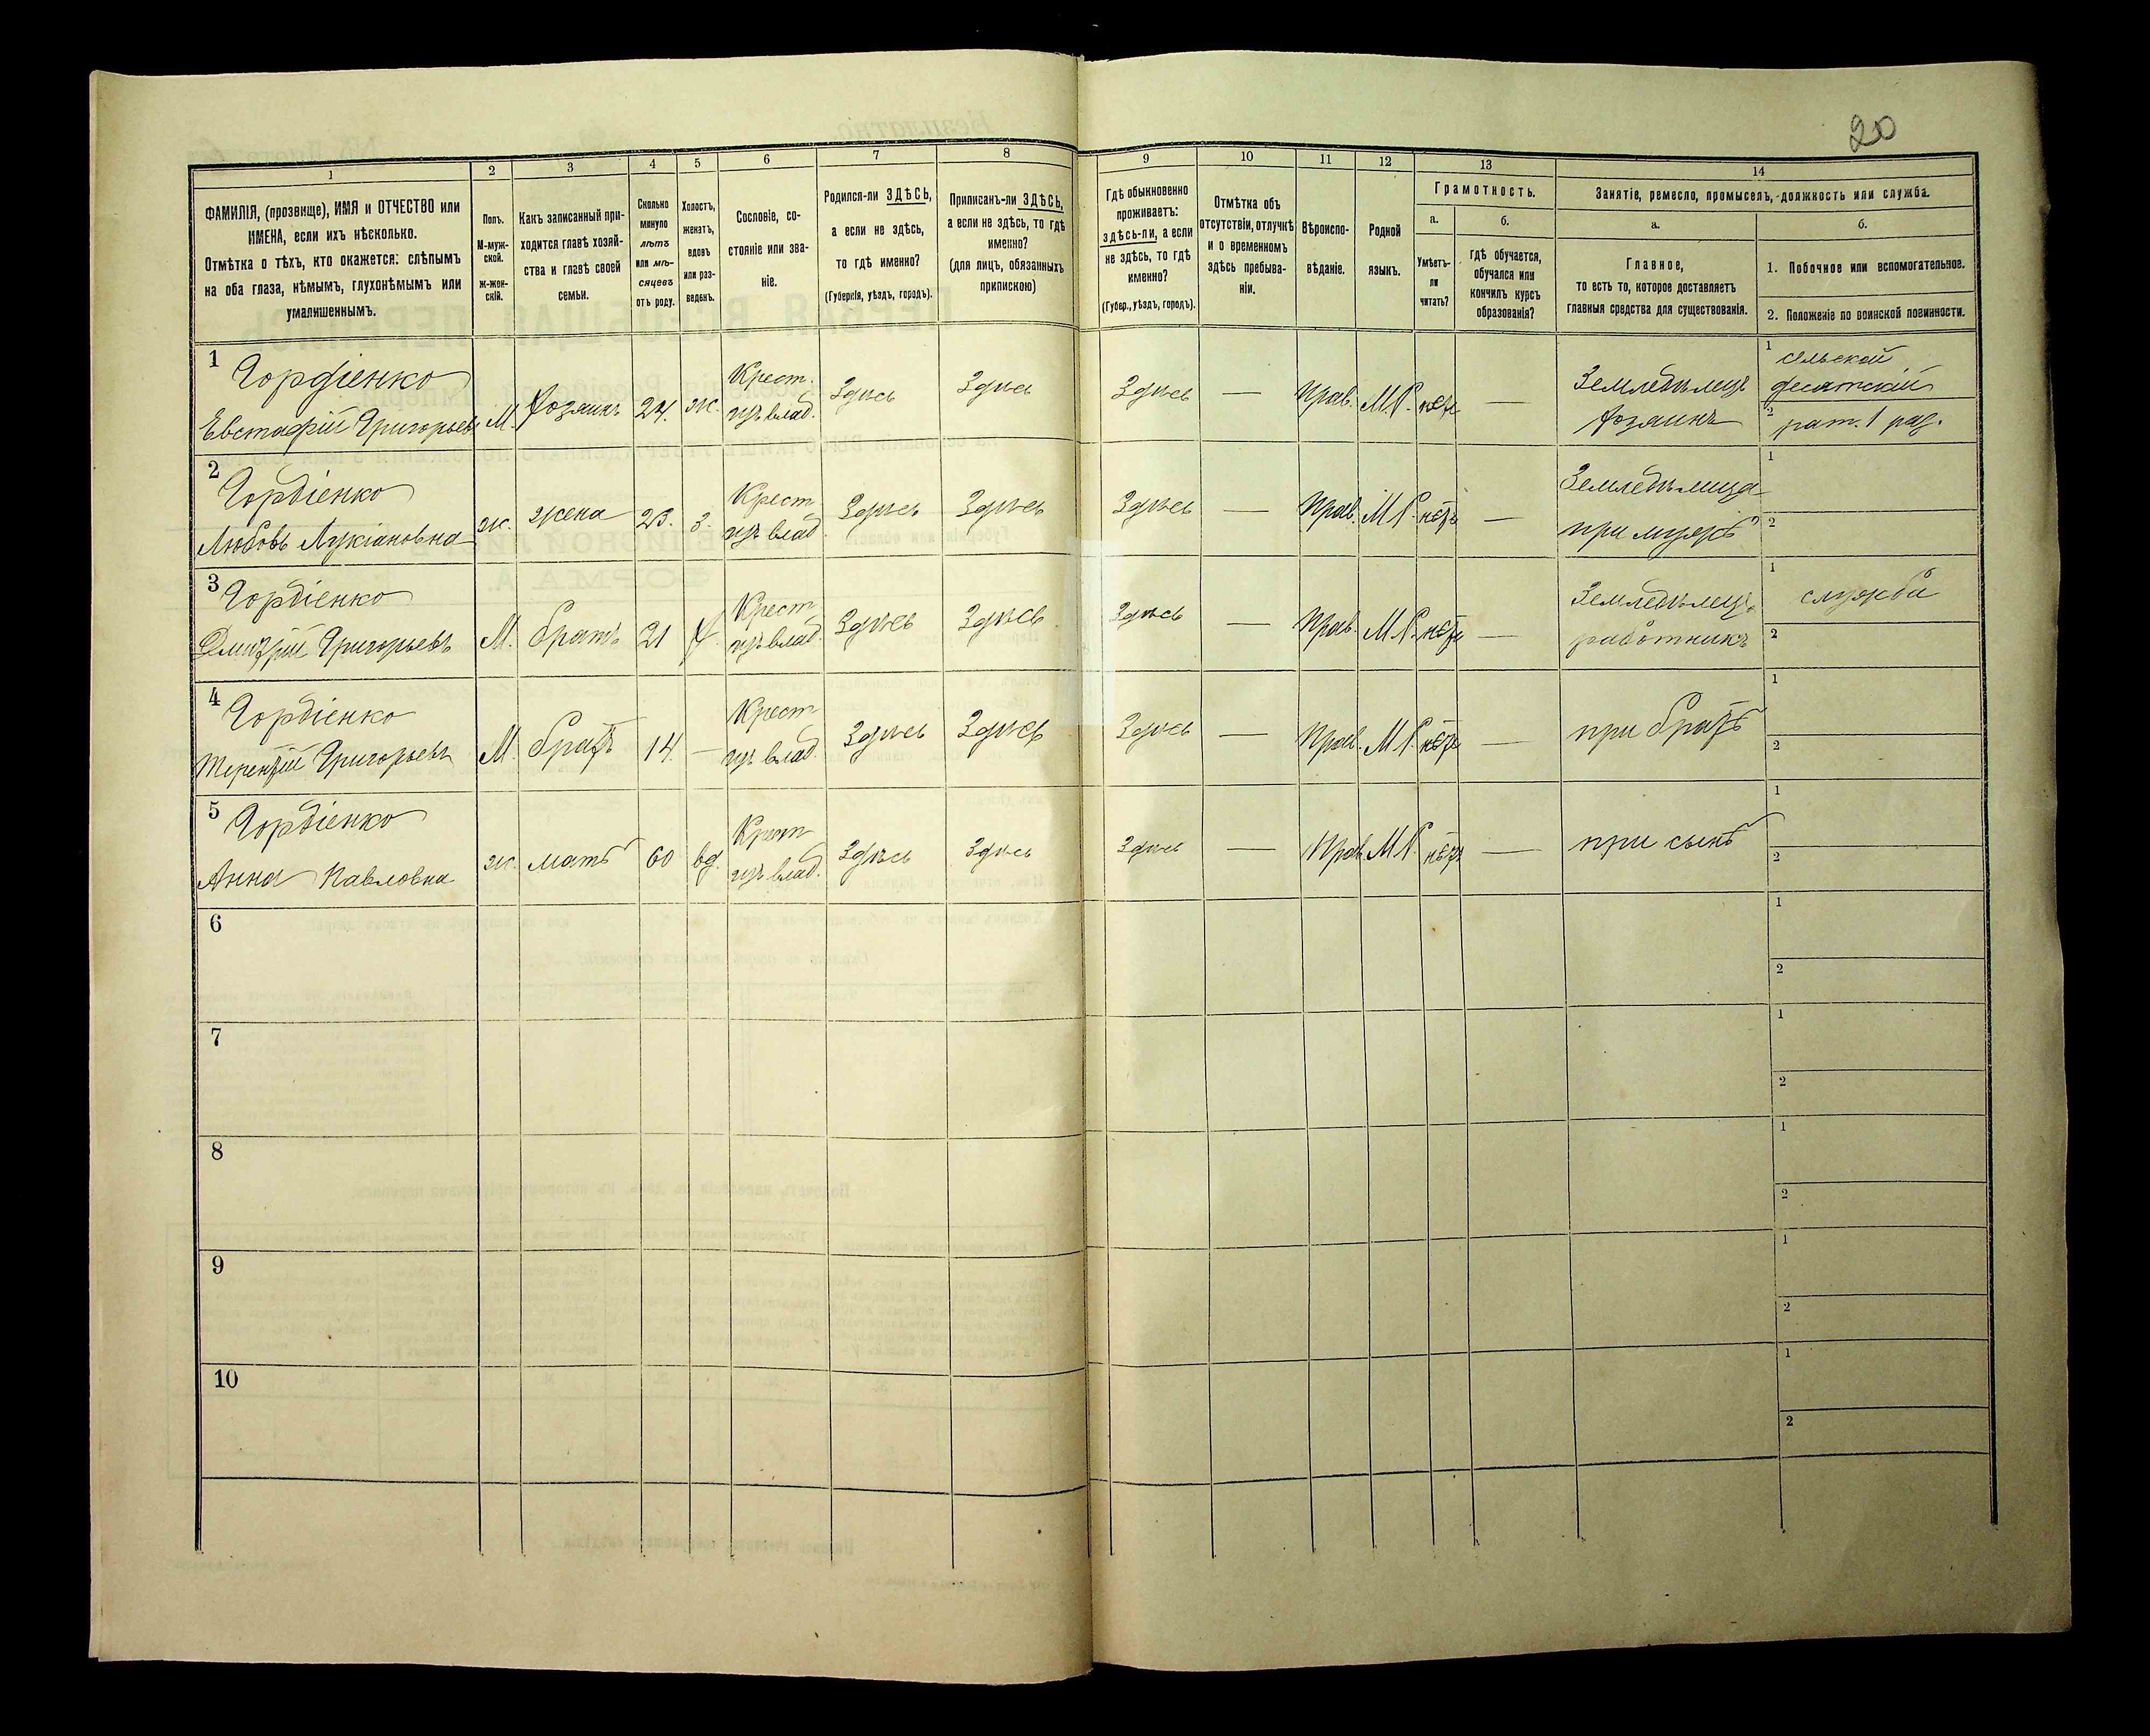 20
1
2
3
4
5
6
7
8
9
10
11
12
13
14
ФАМИЛІЯ, (прозвище), ИМЯ и ОТЧЕСТВО или
ИМЕНА, если ихъ нѣсколько.
Отмѣтка о тѣхъ, кто окажется: слѣпымъ
на оба глаза, нѣмымъ, глухонѣмымъ или
умалишеннымъ.
Полъ.
М-муж-
ской.
Ж-жен-
скій.
Какъ записанный при-
ходится главѣ хозяй-
ства и главѣ своей
семьи.
Сколько
минуло
лѣтъ
или мѣ-
сяцевъ
отъ роду.
Холостъ,
женатъ,
вдовъ
или раз-
веденъ.
Сословіе, со-
стояніе или зва-
ніе.
Родился-ли ЗДѢСЬ,
а если не здѣсь,
то гдѣ именно?
(Губернія, уѣздъ, городъ).
Приписанъ-ли ЗДѢСЬ,
а если не здѣсь, то гдѣ
именно?
(для лицъ, обязанныхъ
припискою)
Гдѣ обыкновенно
проживаетъ:
здѣсь-ли, а если
не здѣсь, то гдѣ
именно?
(Губер., уѣздъ, городъ).
Отмѣтка объ
отсутствіи, отлучкѣ
и о временномъ
здѣсь пребыва-
ніи.
Вѣроиспо-
вѣданіе.
Родной
языкъ.
Грамотность.
а.
Умѣетъ-
ли
читать?
б.
Гдѣ обучается,
обучался или
кончилъ курсъ
образованія?
Занятіе, ремесло, промыселъ, должность или служба.
а.
Главное,
то есть то, которое доставляетъ
главныя средства для существованія.
б.
1. Побочное или вспомогательное.
2. Положеніе по воинской повинности.
1 Гордіенко
Евстафій Григорьевъ М. Хозяинъ 24. ж. Крест. изъ влад. Здѣсь Здѣсь Здѣсь — Прав. М.Р. нѣтъ — Земледѣлецъ хозяинъ
1 сельской десятскій
2 рат. 1 раз.
2 Гордіенко
Любовь Лукіановна ж. жена 23. з. Крест изъ влад. Здѣсь Здѣсь Здѣсь — Прав. М.Р. нѣтъ — Земледѣлица при мужѣ
1
2
3 Гордіенко
Дмитрій Григорьевъ М. братъ 21 х. Крест изъ влад. Здѣсь Здѣсь Здѣсь — Прав. М.Р. нѣтъ — Земледѣлецъ работникъ
1 служба
2
4 Гордіенко
Терентій Григорьевъ М. братъ 14. — Крест изъ влад. Здѣсь Здѣсь Здѣсь — Прав. М.Р. нѣтъ — при братѣ
1
2
5 Гордіенко
Анна Павловна ж. мать 60 вд. Крест изъ влад. Здѣсь Здѣсь Здѣсь — Прав. М.Р. нѣтъ — при сынѣ
1
2
6
1
2
7
1
2
8
1
2
9
1
2
10
1
2